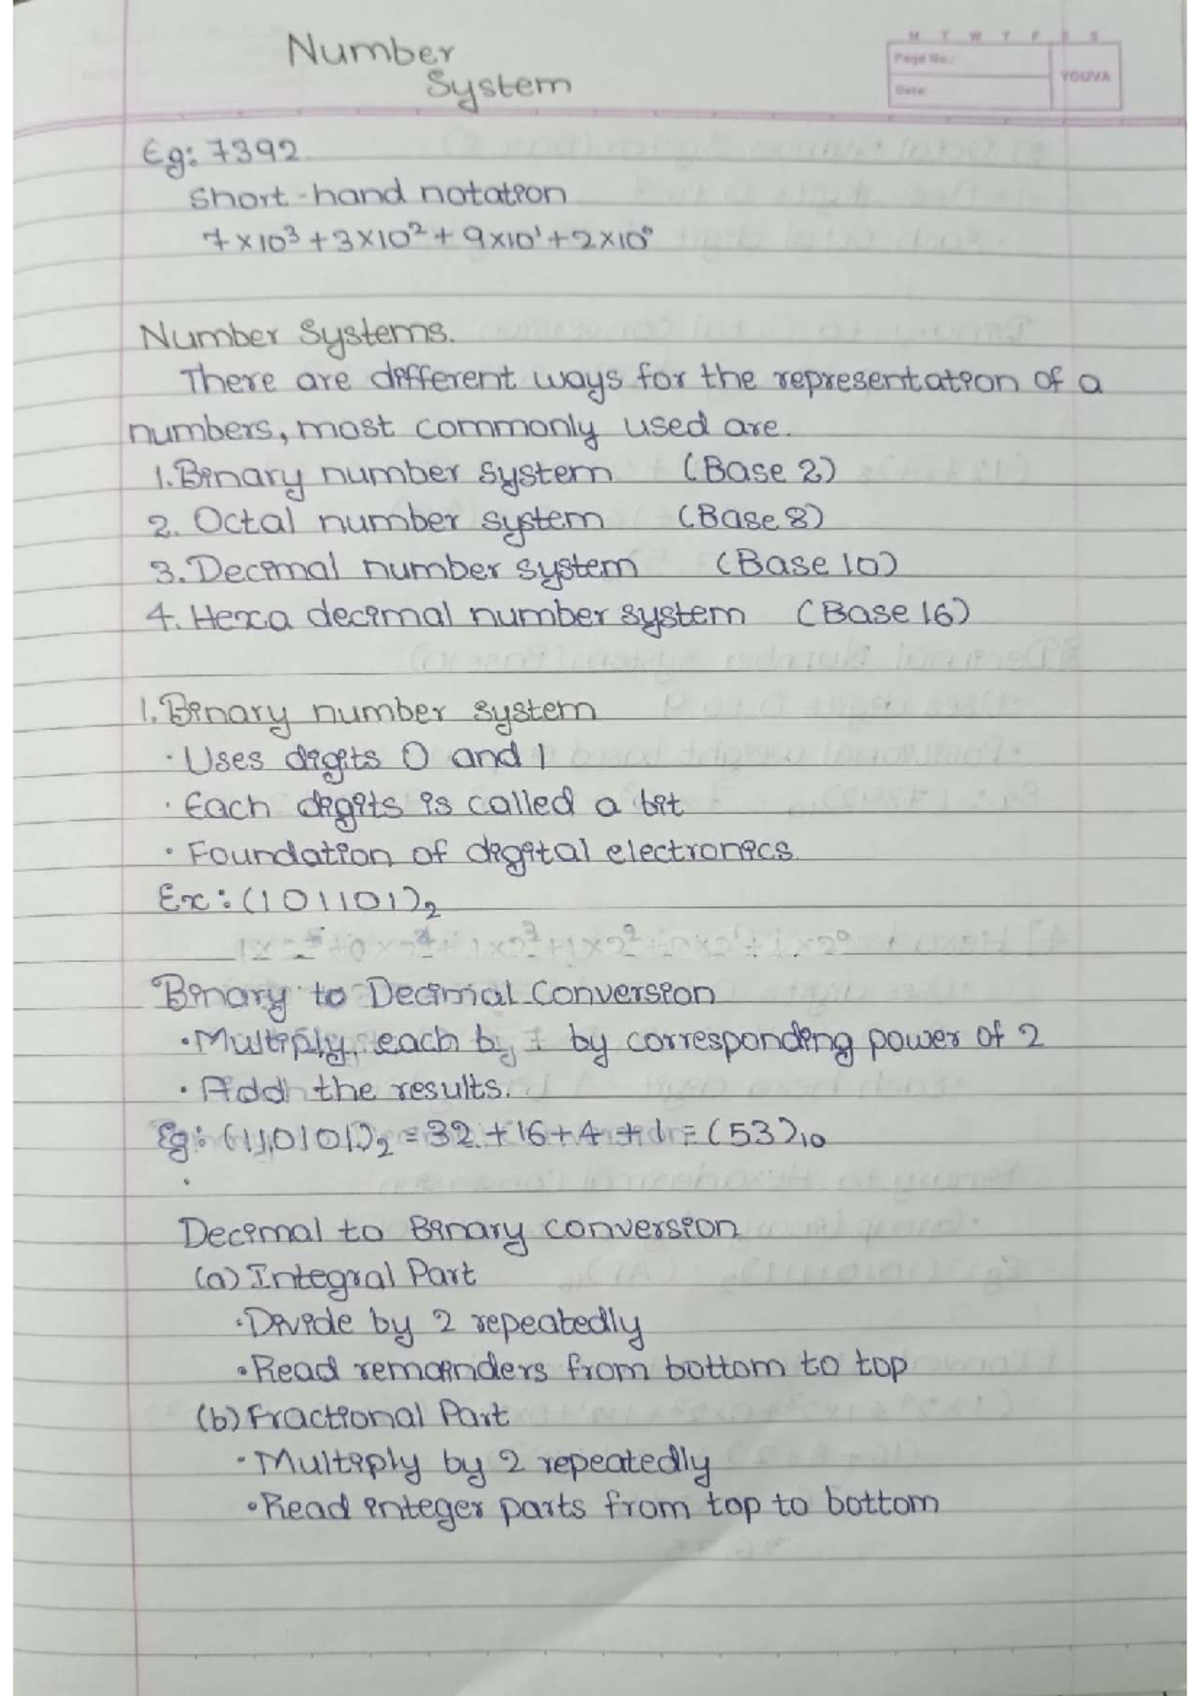 Number
System
M T W T F S S
Page No.:
Date:
YOUVA
Eg: 7392.
Short-hand notation
7×10³+3×10²+9×10¹+2×10⁰
Number Systems.
There are different ways for the representation of a
numbers, most commonly used are.
1. Binary number system (Base 2)
2. Octal number system (Base 8)
3. Decimal number system (Base 10)
4. Hexa decimal number system (Base 16)
1. Binary number system
· Uses digits 0 and 1
· Each digits is called a bit
· Foundation of digital electronics.
Ex: (101101)₂
Binary to Decimal Conversion
· Multiply each by 1 by corresponding power of 2
· Add the results.
Eg: (110101)₂ = 32 + 16 + 4 + 1 = (53)₁₀
·
Decimal to Binary conversion
(a) Integral Part
· Divide by 2 repeatedly
· Read remainders from bottom to top
(b) Fractional Part
· Multiply by 2 repeatedly
· Read integer parts from top to bottom